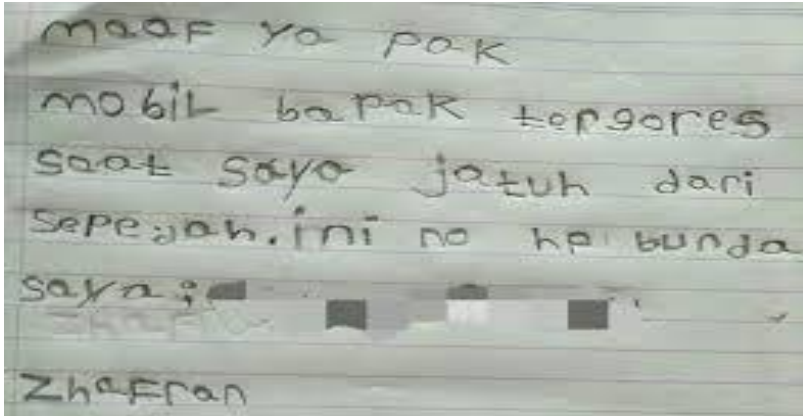 maaf ya pak
mobil bapak tergores
saat saya jatuh dari
sepedah.ini no hp bunda
saya :
Zhafran